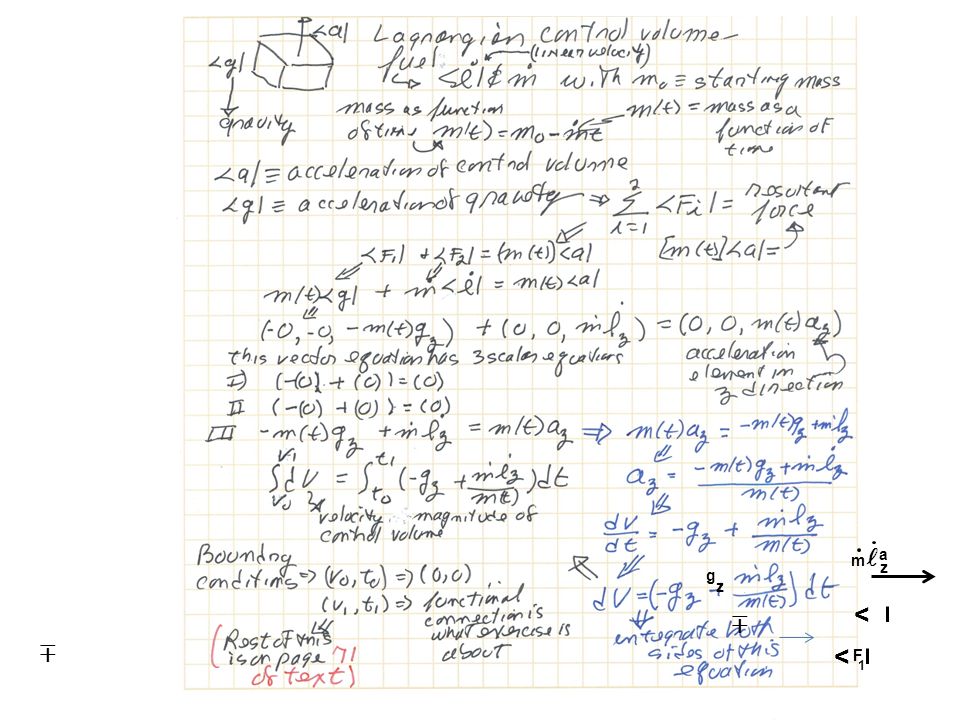 <a| Lagrangian control volume
<g| fuel (linear velocity)
↳ <ℓ̇| & ṁ with m₀ ≡ starting mass
gravity mass as function of time m(t) = m₀ - ṁt ⇐ m(t) = mass as a function of time
<a| ≡ acceleration of control volume
<g| ≡ acceleration of gravity ⇒ Σ_{i=1}^{2} <Fi| = resultant force
<F₁| + <F₂| = (m(t))<a| [m(t)]<a| =
m(t)<g| + ṁ<ℓ̇| = m(t)<a|
(-0, -0, -m(t)g_z) + (0, 0, ṁℓ̇_z) = (0, 0, m(t)a_z)
this vector equation has 3 scalar equations
acceleration element in z direction
I) (-(0) + (0)) = (0)
II (-(0) + (0)) = (0)
III -m(t)g_z + ṁℓ̇_z = m(t)a_z ⇒ m(t)a_z = -m(t)g_z + ṁℓ̇_z
a_z = (-m(t)g_z + ṁℓ̇_z) / m(t)
∫_{v₀}^{v₁} dV = ∫_{t₀}^{t₁} (-g_z + ṁℓ̇_z / m(t)) dt
velocity magnitude of control volume
dV/dt = -g_z + ṁℓ̇_z / m(t)
Bounding conditions ⇒ (v₀, t₀) ⇒ (0,0)
(v₁, t₁) ⇒ functional connection is what exercise is about
dV = (-g_z + ṁℓ̇_z / m(t)) dt
integrate both sides of this equation
(Rest of this is on page 71 of text)
g z
ṁ ℓ̇ a z
< |
< F1 |
∓
∓